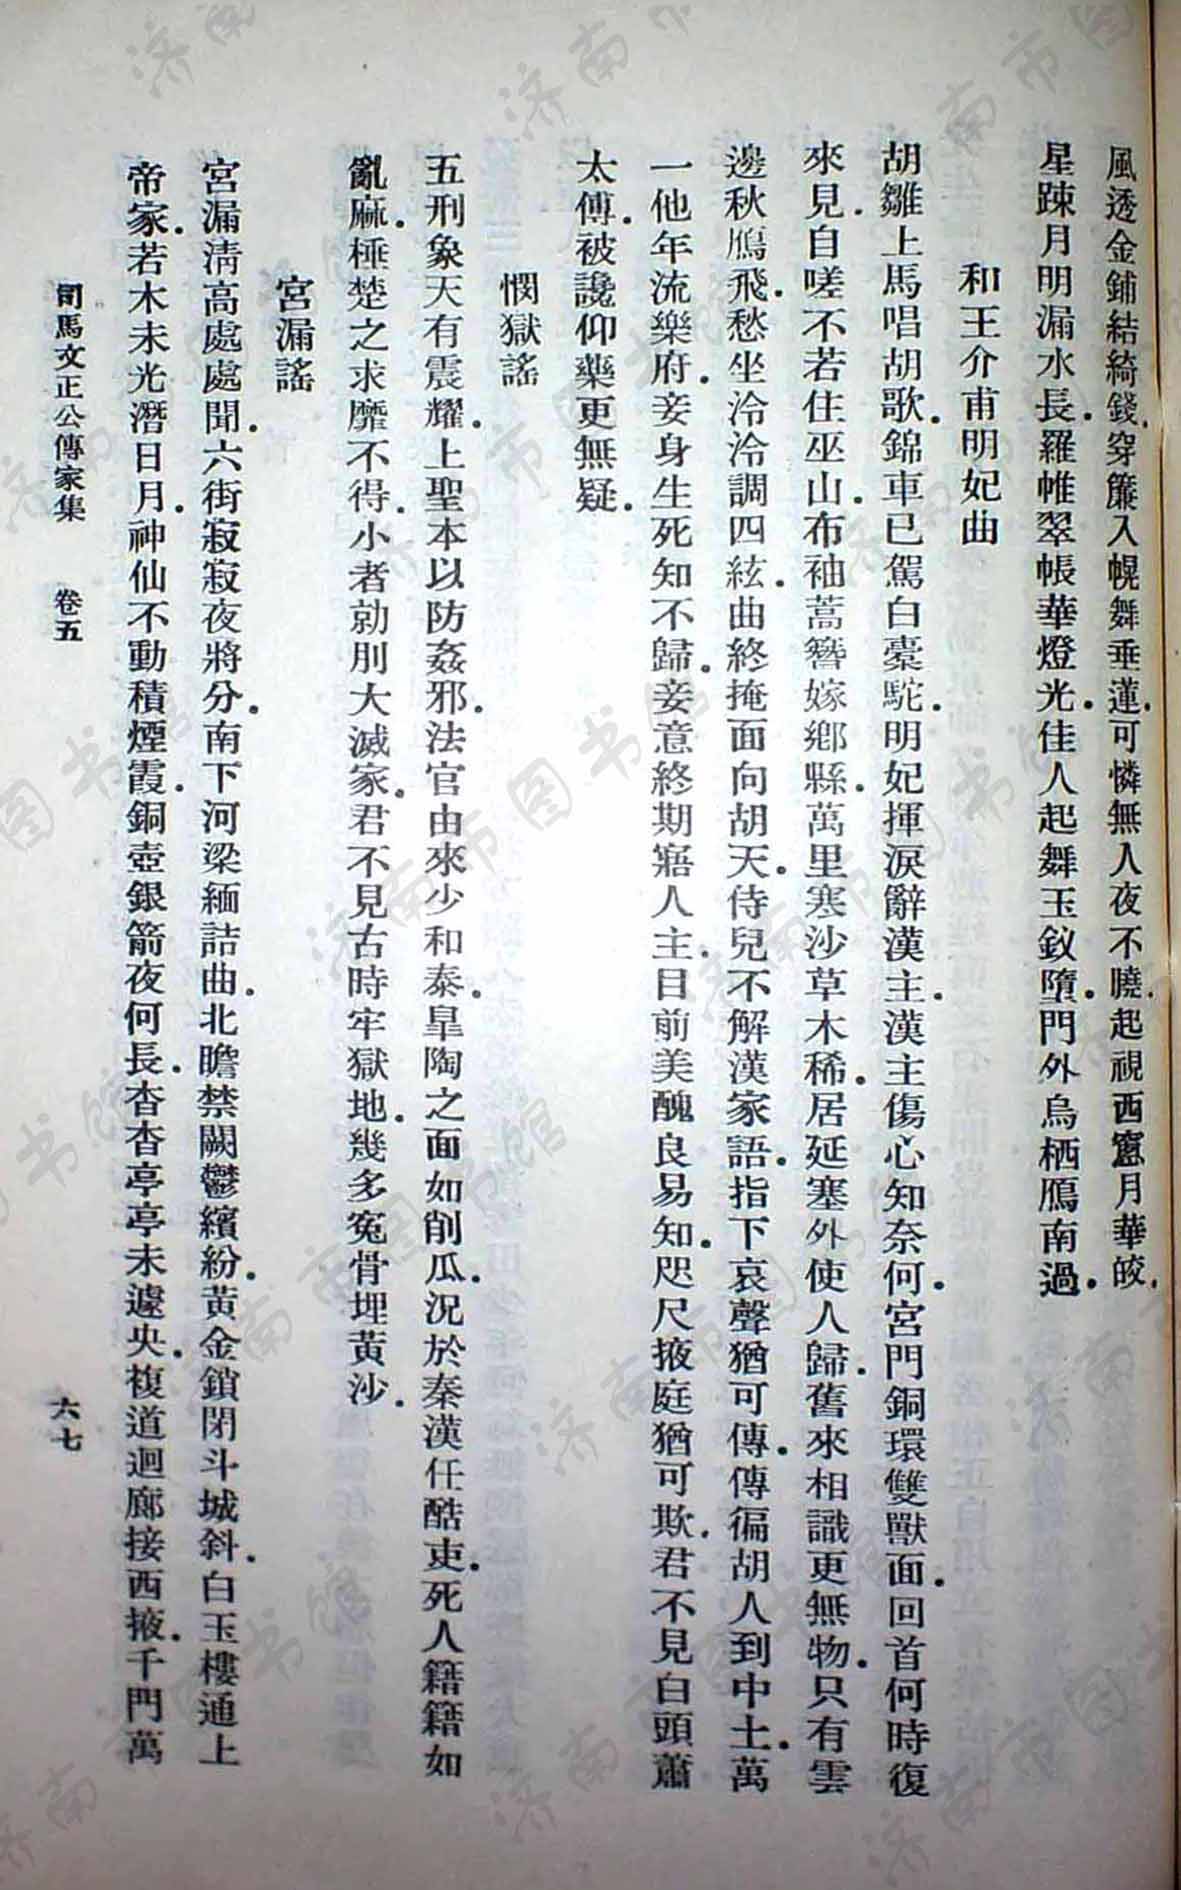 風透金鋪結綺錢．穿簾入幌舞垂蓮．可憐無人夜不曉．起視西窻月華皎．
星踈月明漏水長．羅帷翠帳華燈光．佳人起舞玉釵墮．門外烏栖鴈南過．
和王介甫明妃曲
胡雛上馬唱胡歌．錦車已駕白橐駝．明妃揮淚辭漢主．漢主傷心知奈何．宮門銅環雙獸面．回首何時復
來見．自嗟不若住巫山．布袖蒿簪嫁鄉縣．萬里寒沙草木稀．居延塞外使人歸．舊來相識更無物．只有雲
邊秋鴈飛．愁坐泠泠調四絃．曲終掩面向胡天．侍兒不解漢家語．指下哀聲猶可傳．傳徧胡人到中土．萬
一他年流樂府．妾身生死知不歸．妾意終期寤人主．目前美醜良易知．咫尺掖庭猶可欺．君不見白頭蕭
太傅．被讒仰藥更無疑．
憫獄謠
五刑象天有震耀．上聖本以防姦邪．法官由來少和泰．臯陶之面如削瓜．況於秦漢任酷吏．死人籍籍如
亂麻．棰楚之求靡不得．小者劾刖大滅家．君不見古時牢獄地．幾多冤骨埋黃沙．
宮漏謠
宮漏淸高處處聞．六街寂寂夜將分．南下河梁緬詰曲．北瞻禁闕鬱繽紛．黃金鎖閉斗城斜．白玉樓通上
帝家．若木未光潛日月．神仙不動積煙霞．銅壺銀箭夜何長．杳杳亭亭未遽央．複道迴廊接西掖．千門萬
司馬文正公傳家集　卷五　六七